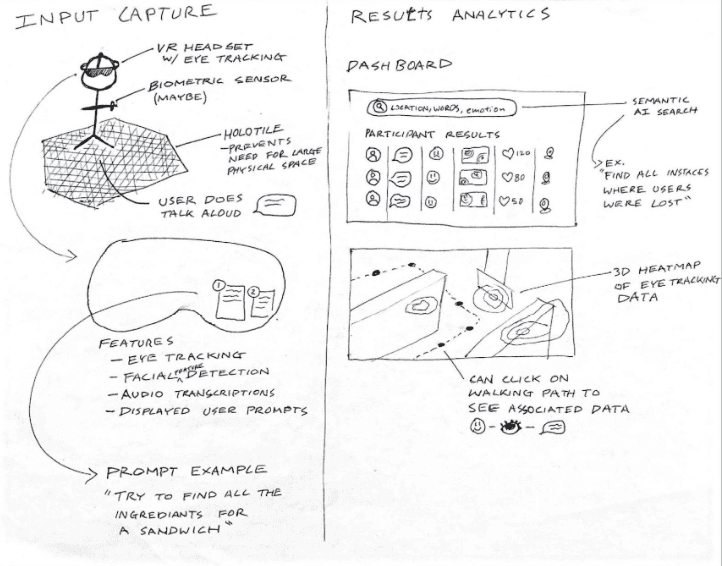 INPUT CAPTURE
VR HEADSET
W/ EYE TRACKING
BIOMETRIC SENSOR
(MAYBE)
HOLOTILE
- PREVENTS
NEED FOR LARGE
PHYSICAL SPACE
USER DOES
TALK ALOUD
1 2
FEATURES
- EYE TRACKING
- FACIAL FEATURE DETECTION
- AUDIO TRANSCRIPTIONS
- DISPLAYED USER PROMPTS
PROMPT EXAMPLE
"TRY TO FIND ALL THE
INGREDIANTS FOR
A SANDWICH"
RESULTS ANALYTICS
DASHBOARD
LOCATION, WORDS, emotion
SEMANTIC
AI SEARCH
PARTICIPANT RESULTS
120
80
50
EX.
"FIND ALL INSTACES
WHERE USERS
WERE LOST"
3D HEATMAP
OF EYETRACKING
DATA
CAN CLICK ON
WALKING PATH TO
SEE ASSOCIATED DATA